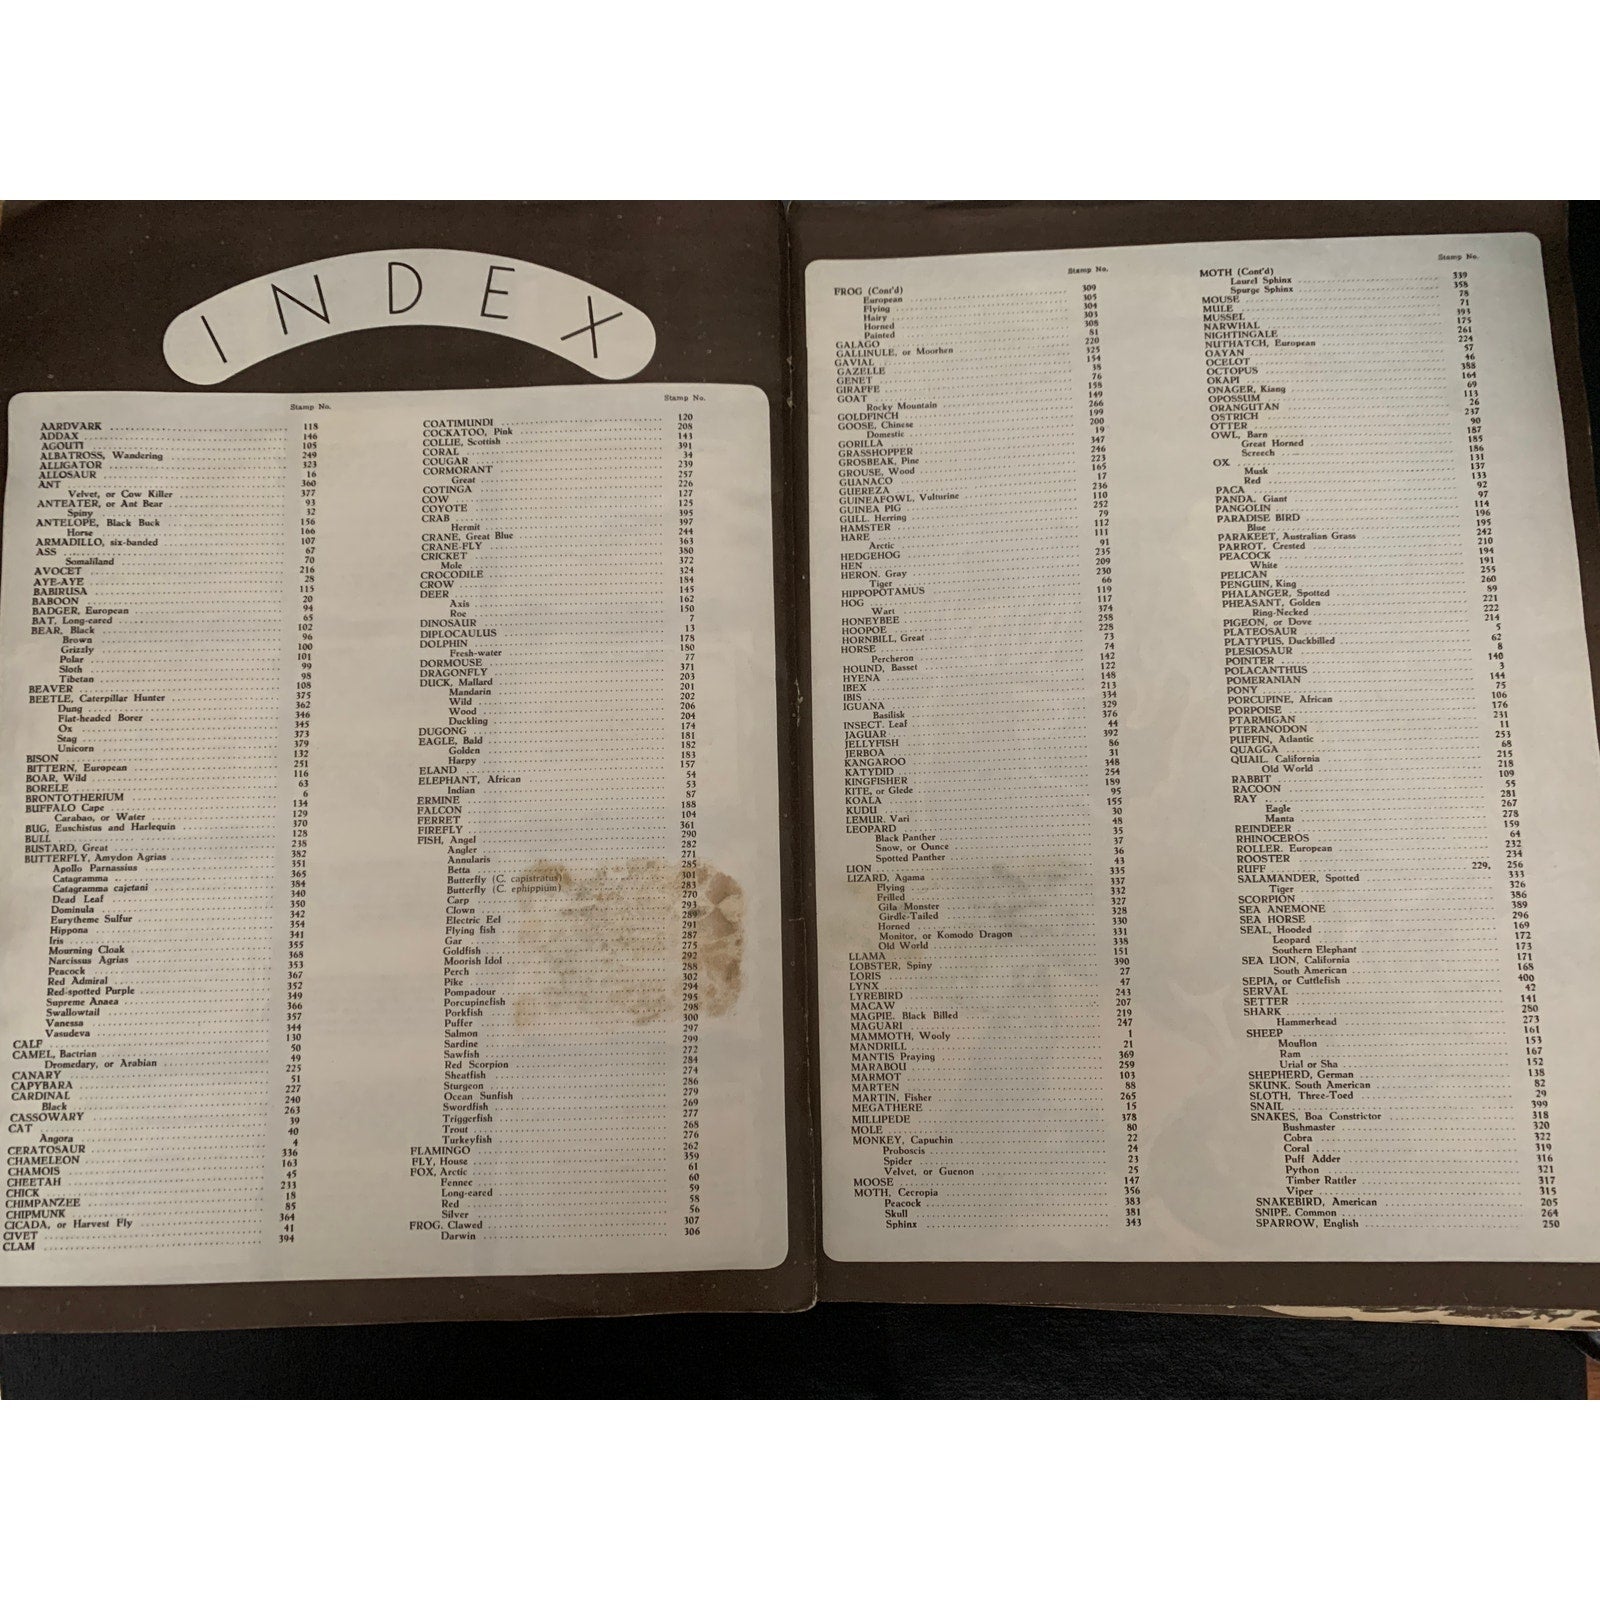 INDEX
Stamp No.
AARDVARK 118
ADDAX 146
AGOUTI 105
ALBATROSS, Wandering 249
ALLIGATOR 323
ALLOSAUR 16
ANT 360
Velvet, or Cow Killer 377
ANTEATER, or Ant Bear 93
Spiny 32
ANTELOPE, Black Buck 156
Horse 166
ARMADILLO, six-banded 107
ASS 67
Somaliland 70
AVOCET 216
AYE-AYE 28
BABIRUSA 115
BABOON 20
BADGER, European 94
BAT, Long-eared 65
BEAR, Black 102
Brown 96
Grizzly 100
Polar 101
Sloth 99
Tibetan 98
BEAVER 108
BEETLE, Caterpillar Hunter 375
Dung 362
Flat-headed Borer 346
Ox 345
Stag 373
Unicorn 379
BISON 132
BITTERN, European 251
BOAR, Wild 116
BORELE 63
BRONTOTHERIUM 6
BUFFALO Cape 134
Carabao, or Water 129
BUG, Euschistus and Harlequin 370
BULL 128
BUSTARD, Great 238
BUTTERFLY, Amydon Agrias 382
Apollo Parnassius 351
Catagramma 365
Catagramma cajetani 384
Dead Leaf 340
Dominula 350
Eurytheme Sulfur 342
Hippona 354
Iris 341
Mourning Cloak 355
Narcissus Agrias 368
Peacock 353
Red Admiral 367
Red-spotted Purple 352
Supreme Anaea 349
Swallowtail 366
Vanessa 357
Vasudeva 344
CALF 130
CAMEL, Bactrian 50
Dromedary, or Arabian 49
CANARY 225
CAPYBARA 51
CARDINAL 227
Black 240
CASSOWARY 263
CAT 39
Angora 40
CERATOSAUR 4
CHAMELEON 336
CHAMOIS 163
CHEETAH 45
CHICK 233
CHIMPANZEE 18
CHIPMUNK 85
CICADA, or Harvest Fly 364
CIVET 41
CLAM 394
Stamp No.
COATIMUNDI 120
COCKATOO, Pink 208
COLLIE, Scottish 143
CORAL 391
COUGAR 34
CORMORANT 239
Great 257
COTINGA 226
COW 127
COYOTE 125
CRAB 395
Hermit 397
CRANE, Great Blue 244
CRANE-FLY 363
CRICKET 380
Mole 372
CROCODILE 324
CROW 184
DEER 145
Axis 162
Roe 150
DINOSAUR 7
DIPLOCAULUS 13
DOLPHIN 178
Fresh-water 180
DORMOUSE 77
DRAGONFLY 371
DUCK, Mallard 203
Mandarin 201
Wild 202
Wood 206
Duckling 204
DUGONG 174
EAGLE, Bald 181
Golden 182
Harpy 183
ELAND 157
ELEPHANT, African 54
Indian 53
ERMINE 87
FALCON 188
FERRET 104
FIREFLY 361
FISH, Angel 290
Angler 282
Annularis 271
Betta 285
Butterfly (C. capistratus) 301
Butterfly (C. ephippium) 283
Carp 270
Clown 293
Electric Eel 289
Flying fish 291
Gar 287
Goldfish 275
Moorish Idol 292
Perch 288
Pike 302
Pompadour 294
Porcupinefish 295
Porkfish 298
Puffer 300
Salmon 297
Sardine 299
Sawfish 272
Red Scorpion 284
Sheatfish 274
Sturgeon 286
Ocean Sunfish 279
Swordfish 269
Triggerfish 277
Trout 268
Turkeyfish 276
FLAMINGO 262
FLY, House 359
FOX, Arctic 61
Fennec 60
Long-eared 59
Red 58
Silver 56
FROG, Clawed 307
Darwin 306
Stamp No.
FROG (Cont'd)
European 309
Flying 305
Hairy 304
Horned 303
Painted 308
GALAGO 81
GALLINULE, or Moorhen 220
GAVIAL 325
GAZELLE 154
GENET 38
GIRAFFE 76
GOAT 158
Rocky Mountain 149
GOLDFINCH 266
GOOSE, Chinese 199
Domestic 200
GORILLA 19
GRASSHOPPER 347
GROSBEAK, Pine 246
GROUSE, Wood 223
GUANACO 165
GUEREZA 17
GUINEAFOWL, Vulturine 236
GUINEA PIG 110
GULL, Herring 252
HAMSTER 79
HARE 112
Arctic 111
HEDGEHOG 91
HEN 235
HERON, Gray 209
Tiger 230
HIPPOPOTAMUS 66
HOG 119
Wart 117
HONEYBEE 374
HOOPOE 258
HORNBILL, Great 228
HORSE 73
Percheron 74
HOUND, Basset 142
HYENA 122
IBEX 148
IBIS 213
IGUANA 334
Basilisk 329
INSECT, Leaf 376
JAGUAR 44
JELLYFISH 392
JERBOA 86
KANGAROO 31
KATYDID 348
KINGFISHER 254
KITE, or Glede 189
KOALA 95
KUDU 155
LEMUR, Vari 30
LEOPARD 48
Black Panther 35
Snow, or Ounce 37
Spotted Panther 36
LION 43
LIZARD, Agama 335
Flying 337
Frilled 332
Gila Monster 327
Girdle-Tailed 328
Horned 330
Monitor, or Komodo Dragon 331
Old World 338
LLAMA 151
LOBSTER, Spiny 390
LORIS 27
LYNX 47
LYREBIRD 243
MACAW 207
MAGPIE, Black Billed 219
MAGUARI 247
MAMMOTH, Wooly 1
MANDRILL 21
MANTIS Praying 369
MARABOU 259
MARMOT 103
MARTEN 88
MARTIN, Fisher 265
MEGATHERE 15
MILLIPEDE 378
MOLE 80
MONKEY, Capuchin 22
Proboscis 24
Spider 23
Velvet, or Guenon 25
MOOSE 147
MOTH, Cecropia 356
Peacock 383
Skull 381
Sphinx 343
Stamp No.
MOTH (Cont'd)
Laurel Sphinx 339
Spurge Sphinx 358
MOUSE 78
MULE 71
MUSSEL 393
NARWHAL 175
NIGHTINGALE 261
NUTHATCH, European 224
OAYAN 57
OCELOT 46
OCTOPUS 388
OKAPI 164
ONAGER, Kiang 69
OPOSSUM 113
ORANGUTAN 26
OSTRICH 237
OTTER 90
OWL, Barn 187
Great Horned 185
Screech 186
OX 131
Musk 137
Red 133
PACA 92
PANDA, Giant 97
PANGOLIN 114
PARADISE BIRD 196
Blue 195
PARAKEET, Australian Grass 242
PARROT, Crested 210
PEACOCK 194
White 191
PELICAN 255
PENGUIN, King 260
PHALANGER, Spotted 89
PHEASANT, Golden 221
Ring-Necked 222
PIGEON, or Dove 214
PLATEOSAUR 5
PLATYPUS, Duckbilled 62
PLESIOSAUR 8
POINTER 140
POLACANTHUS 3
POMERANIAN 144
PONY 75
PORCUPINE, African 106
PORPOISE 176
PTARMIGAN 231
PTERANODON 11
PUFFIN, Atlantic 253
QUAGGA 68
QUAIL, California 215
Old World 218
RABBIT 109
RACOON 55
RAY 281
Eagle 267
Manta 278
REINDEER 159
RHINOCEROS 64
ROLLER, European 232
ROOSTER 234
RUFF 229, 256
SALAMANDER, Spotted 333
Tiger 326
SCORPION 386
SEA ANEMONE 389
SEA HORSE 296
SEAL, Hooded 169
Leopard 172
Southern Elephant 173
SEA LION, California 171
South American 168
SEPIA, or Cuttlefish 400
SERVAL 42
SETTER 141
SHARK 280
Hammerhead 273
SHEEP 161
Mouflon 153
Ram 167
Urial or Sha 152
SHEPHERD, German 138
SKUNK, South American 82
SLOTH, Three-Toed 29
SNAIL 399
SNAKES, Boa Constrictor 318
Bushmaster 320
Cobra 322
Coral 319
Puff Adder 316
Python 321
Timber Rattler 317
Viper 315
SNAKEBIRD, American 205
SNIPE, Common 264
SPARROW, English 250